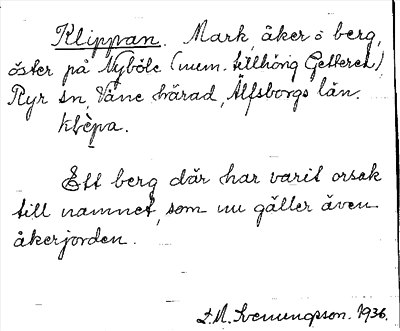 Klippan. Mark, åker o berg,
öster på Nyböle (num. tillhörig Getteren)
Ryr sn, Väne härad, Älfsborgs län.
klèpa.
Ett berg där har varit orsak
till namnet, som nu gäller även
åkerjorden.
1936.